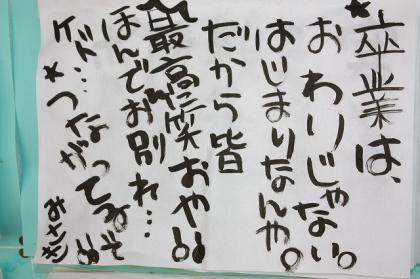 ★卒業は、
おわりじゃない。
はじまりなんや。
だから皆
最高に笑おや!!
ほんでお別れ…
ケド…つながってるぞ!!
★みさき